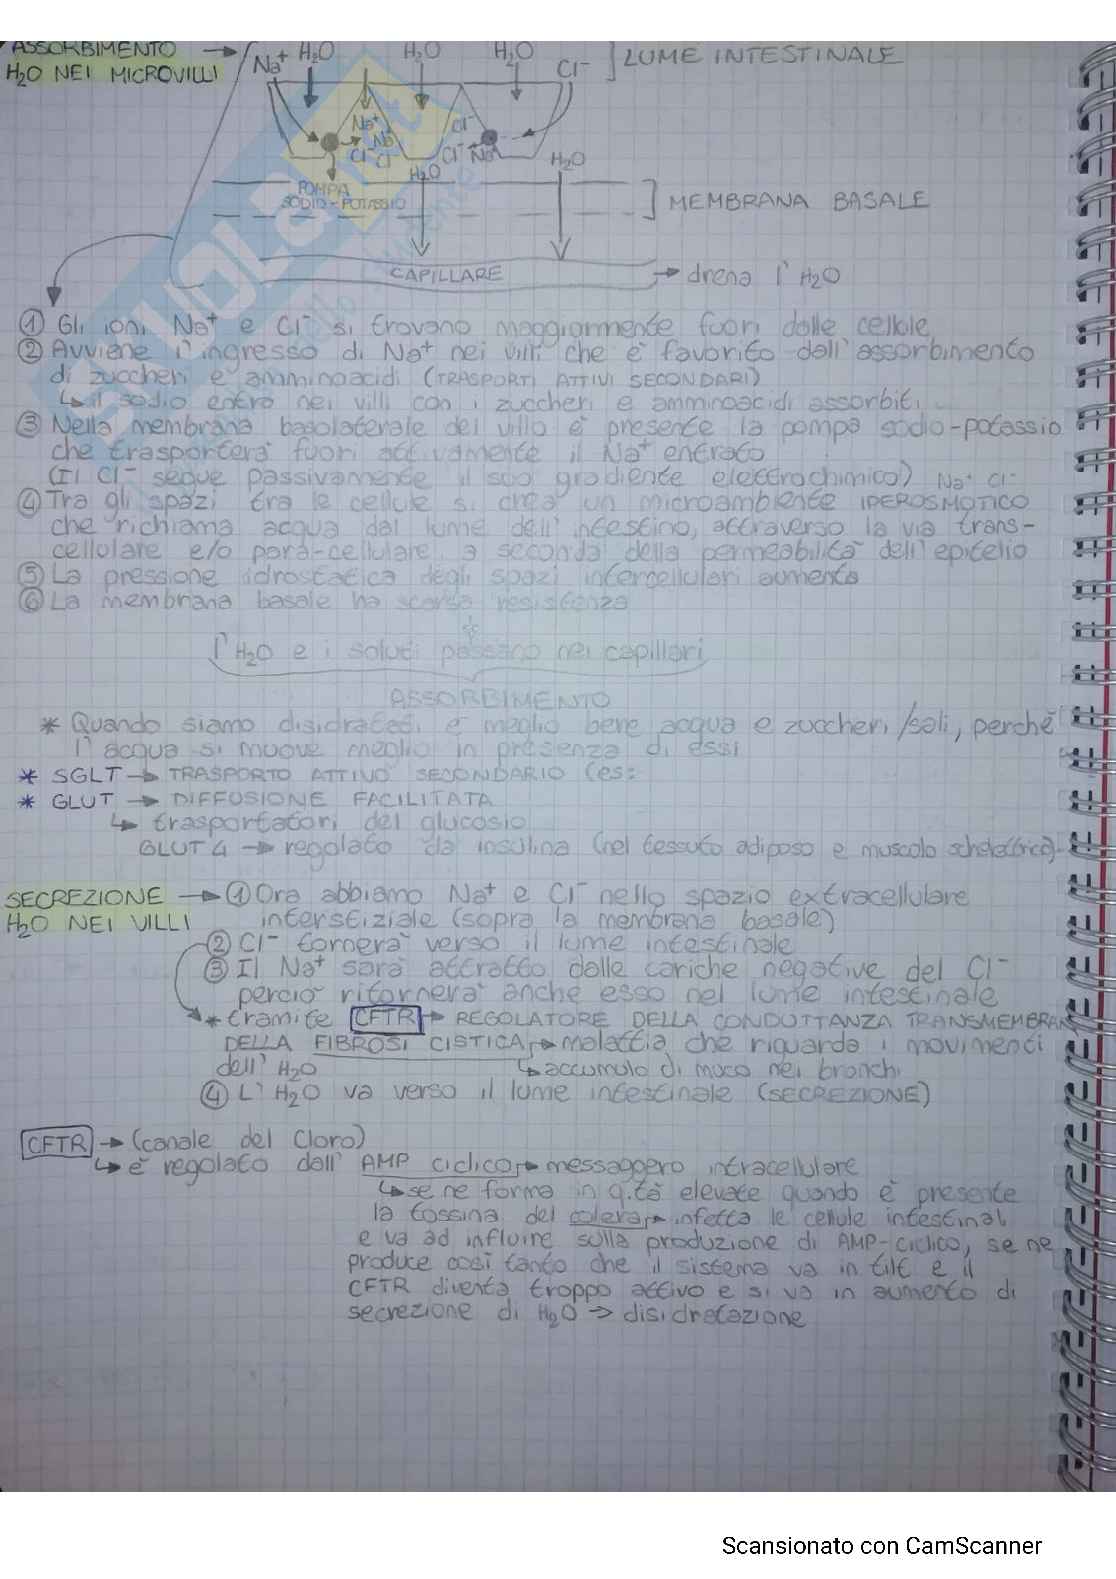 ASSORBIMENTO → Na⁺ H₂O H₂O H₂O Cl⁻ ] LUME INTESTINALE
H₂O NEI MICROVILLI
Na⁺ Cl⁻
Na Cl⁻ Na⁺
Cl⁻ Cl⁻ H₂O
H₂O
POMPA
SODIO-POTASSIO ] MEMBRANA BASALE
CAPILLARE → drena l'H₂O
① Gli ioni Na⁺ e Cl⁻ si trovano maggiormente fuori dalle cellule
② Avviene l'ingresso di Na⁺ nei villi che è favorito dall'assorbimento
di zuccheri e amminoacidi (TRASPORTI ATTIVI SECONDARI)
↳ il sodio entra nei villi con i zuccheri e amminoacidi assorbiti
③ Nella membrana basolaterale del villo è presente la pompa sodio-potassio
che trasporterà fuori attivamente il Na⁺ entrato
(Il Cl⁻ segue passivamente il suo gradiente elettrochimico) Na⁺ Cl⁻
④ Tra gli spazi tra le cellule si crea un microambiente IPEROSMOTICO
che richiama acqua dal lume dell'intestino, attraverso la via trans-
cellulare e/o para-cellulare a seconda della permeabilità dell'epitelio
⑤ La pressione idrostatica degli spazi intercellulari aumenta
⑥ La membrana basale ha scarsa resistenza
l'H₂O e i soluti passano nei capillari
ASSORBIMENTO
* Quando siamo disidratati è meglio bere acqua e zuccheri/sali, perchè
l'acqua si muove meglio in presenza di essi
* SGLT → TRASPORTO ATTIVO SECONDARIO (es:
* GLUT → DIFFUSIONE FACILITATA
↳ trasportatori del glucosio
GLUT 4 → regolato da insulina (nel tessuto adiposo e muscolo scheletrico)
SECREZIONE → ① Ora abbiamo Na⁺ e Cl⁻ nello spazio extracellulare
H₂O NEI VILLI interstiziale (sopra la membrana basale)
② Cl⁻ tornerà verso il lume intestinale
③ Il Na⁺ sarà attratto dalle cariche negative del Cl⁻
perciò ritornerà anche esso nel lume intestinale
* tramite CFTR → REGOLATORE DELLA CONDUTTANZA TRANSMEMBRAN
DELLA FIBROSI CISTICA → malattia che riguarda i movimenti
dell'H₂O ↳ accumulo di muco nei bronchi
④ L'H₂O va verso il lume intestinale (SECREZIONE)
CFTR → (canale del Cloro)
↳ è regolato dall'AMP ciclico → messaggero intracellulare
↳ se ne forma in q.tà elevate quando è presente
la tossina del colera → infetta le cellule intestinali
e va ad influire sulla produzione di AMP-ciclico, se ne
produce così tanto che il sistema va in tilt e il
CFTR diventa troppo attivo e si va in aumento di
secrezione di H₂O → disidratazione
Scansionato con CamScanner